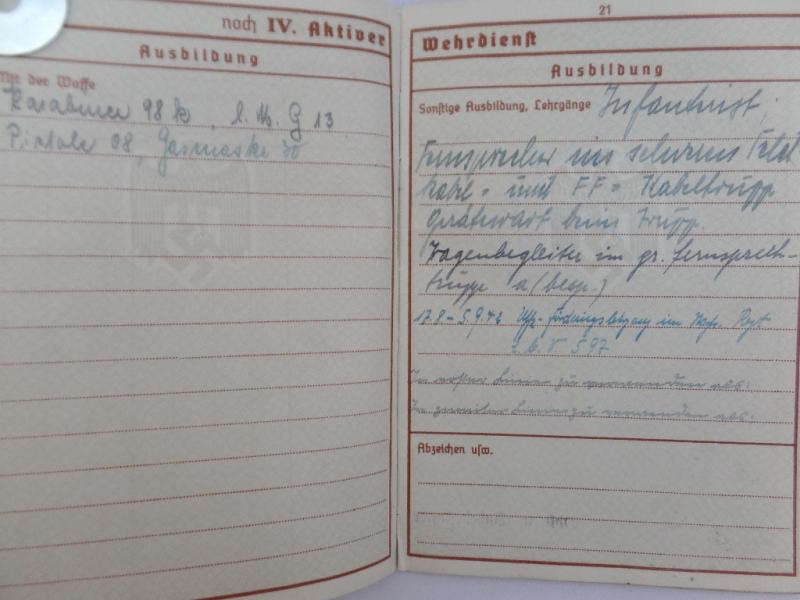 noch IV. Aktiver
Ausbildung
Mit der Waffe
Karabiner 98 k, l. M. G 13
Pistole 08, Gasmaske 30
21
Wehrdienst
Ausbildung
Sonstige Ausbildung, Lehrgänge Infanterist,
Fernsprecher im schweren Feld
kabel- und FF= Kabeltrupp
Gerätewart beim Trupp.
Wagenbegleiter im gr. Fernsprech-
trupp a (besp.)
17.8 - 5.9.42 Uffz.- im Regt
z.b.V 597
In erster Linie zu verwenden als:
In zweiter Linie zu verwenden als:
Abzeichen usw.